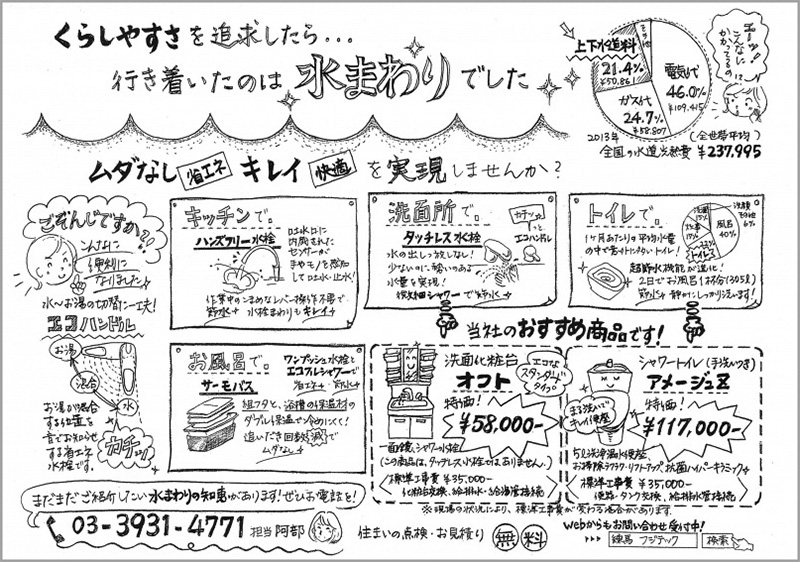 くらしやすさを追求したら...
行き着いたのは水まわりでした
上下水道料
21.4%
¥50.861
その他
電気代
46.0%
¥109.415
ガス代
24.7%
¥58.807
2013年 (全世帯平均)
全国の水道光熱費 ¥237,995
エーッ!
こんなに
かかってるの!?
ムダなし 省エネ キレイ 快適 を実現しませんか?
ごぞんじですか?!
こんなに
便利に
なりました
水〜お湯の切替に一工夫!
エコハンドル
お湯
混合
水
カチッ
お湯が混合
する位置を
音でお知らせ
する省エネ
水栓です。
キッチンで。
ハンズフリー水栓
吐水口に
内蔵された
センサーが
手やモノを感知
して吐水・止水!
作業中のこまめなレバー操作不要で
節水 水栓まわりもキレイ
洗面所で。
タッチレス水栓
水の出しっ放しなし!
少ないのに勢いのある
水量を実現!
微細シャワーで節水
カチッと
エコハンドル
トイレで。
1ヶ月あたりの平均水量
の中で意外に大きいトイレ!
風呂
40%
トイレ
超節水機能が進化!
2日でお風呂1杯分(305ℓ)
節水 静かにしっかり洗います!
お風呂で。
サーモバス
ワンプッシュ水栓と
エコフルシャワーで
省エネ 節水
組フタと、浴槽の保温材の
ダブル保温で冷めにくく!
追いだき回数減で
ムダなし
当社のおすすめ商品です!
洗面化粧台
オフト
エコな
スタンダード
タイプ
特価!
¥58,000-
一面鏡・シャワー水栓
(この商品は、タッチレス水栓ではありません。)
標準工事費 ¥35,000-
化粧台交換、給排水・給湯管接続
シャワートイレ(手洗いつき)
アメージュZ
まる洗いで
キレイ便座
特価!
¥117,000-
5ℓ洗浄温水便座、
お掃除ラクラク・リフトアップ、抗菌ハイパーキラミック
標準工事費 ¥35,000-
便器・タンク交換、給排水管接続
※現場の状況により、標準工事費が変わる場合があります。
まだまだご紹介したい水まわりの知恵があります!ぜひお電話を!
03-3931-4771 担当 阿部
住まいの点検・お見積り 無料
Webからもお問い合わせ受付中!
練馬 フジテック 検索